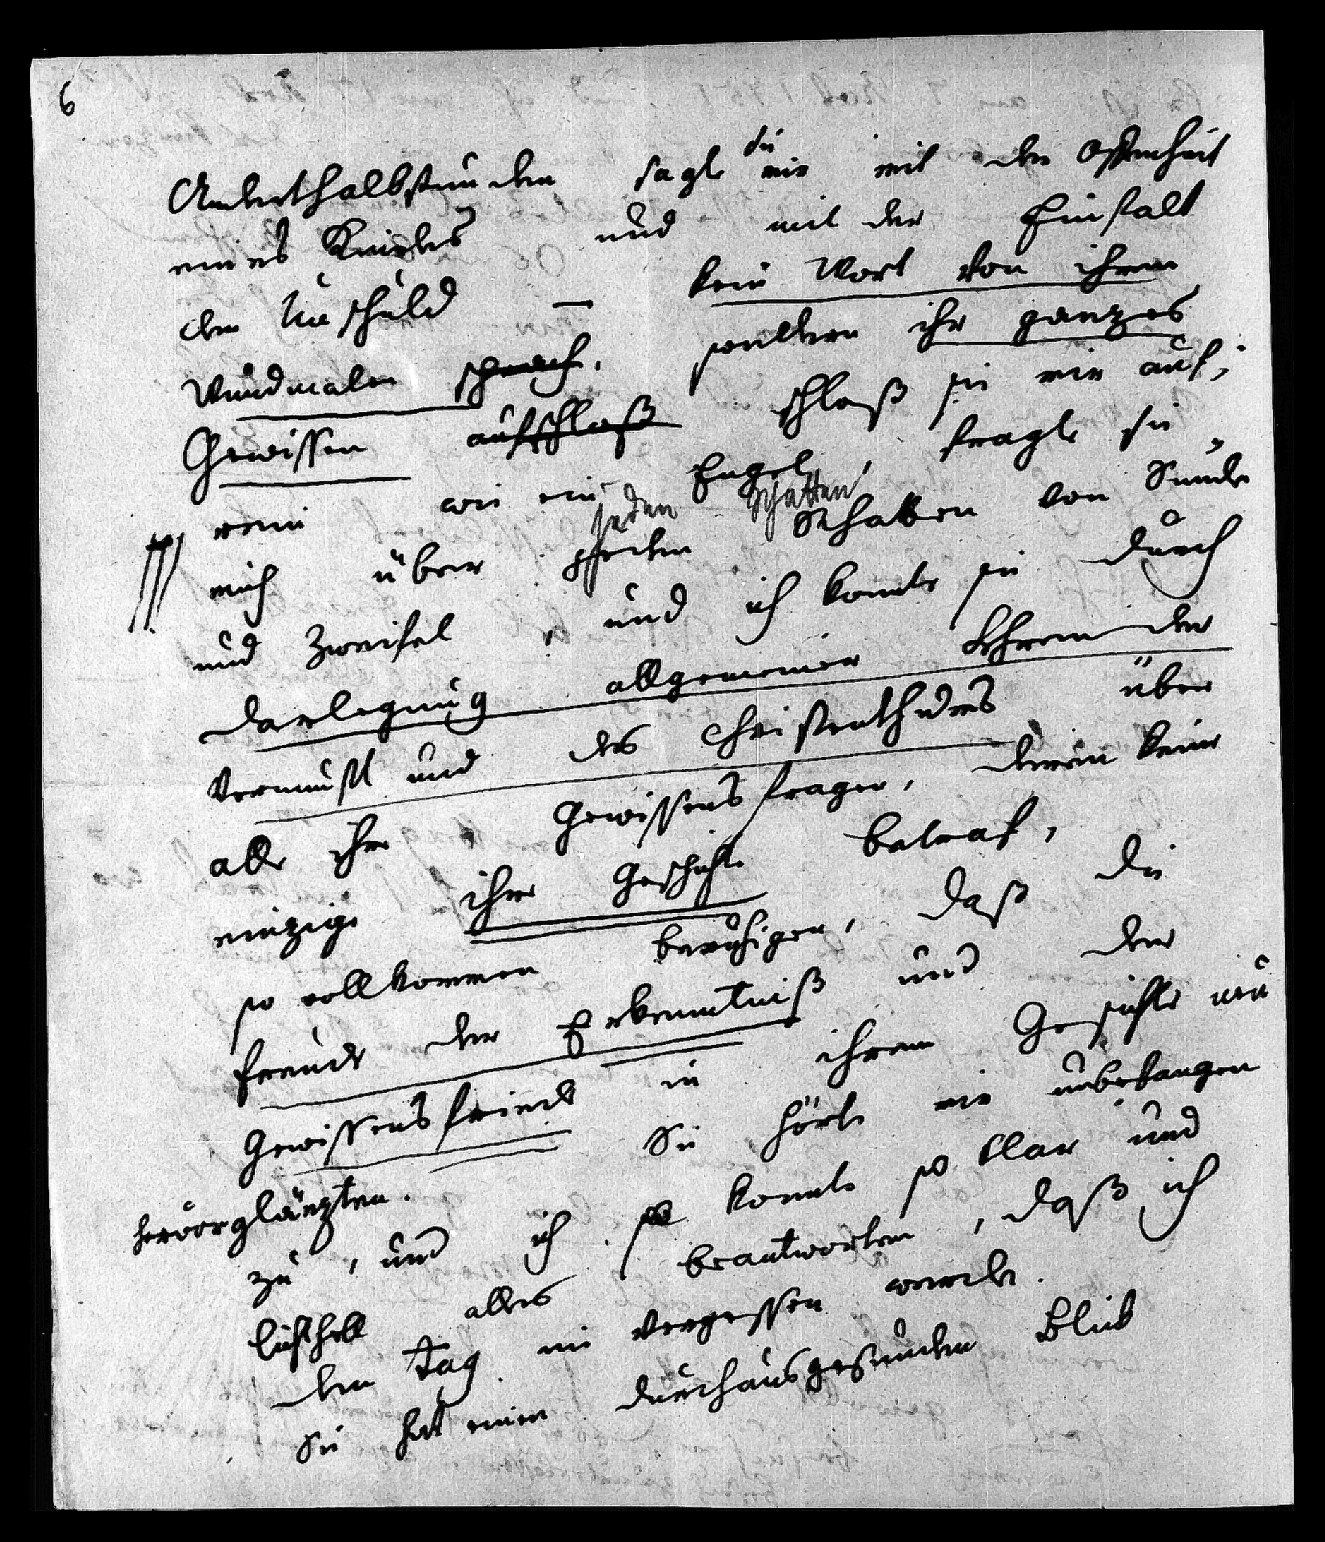 6
Anderthalbstunden sagte sie mir mit der Offenheit
eines Kindes und mit der Einfalt
der Unschuld — kein Wort von ihren
Wundmalen sprach, sondern ihr ganzes
Gewissen aufschloß schloß sie mir auf,
rein wie ein Engel, fragte sie
mich über jeden Schatten von Sünde
jeden Schatten
und Zweifel, und ich konnte sie durch
Darlegung allgemeiner Lehren der
Vernunft und des Christenthumes über
alle ihre Gewissensfragen, deren keine
einzige ihre Geschichte betraf,
so vollkommen beruhigen, daß die
Freude der Erkenntniß und der
Gewissensfriede in ihrem Gesichte
hervorglänzten. Sie hörte mir unbefangen
zu, und ich so konnte so klar und
lichthell alles beantworten, daß ich
den Tag nie vergessen werde.
Sie hat einen durchausgesunden Blick